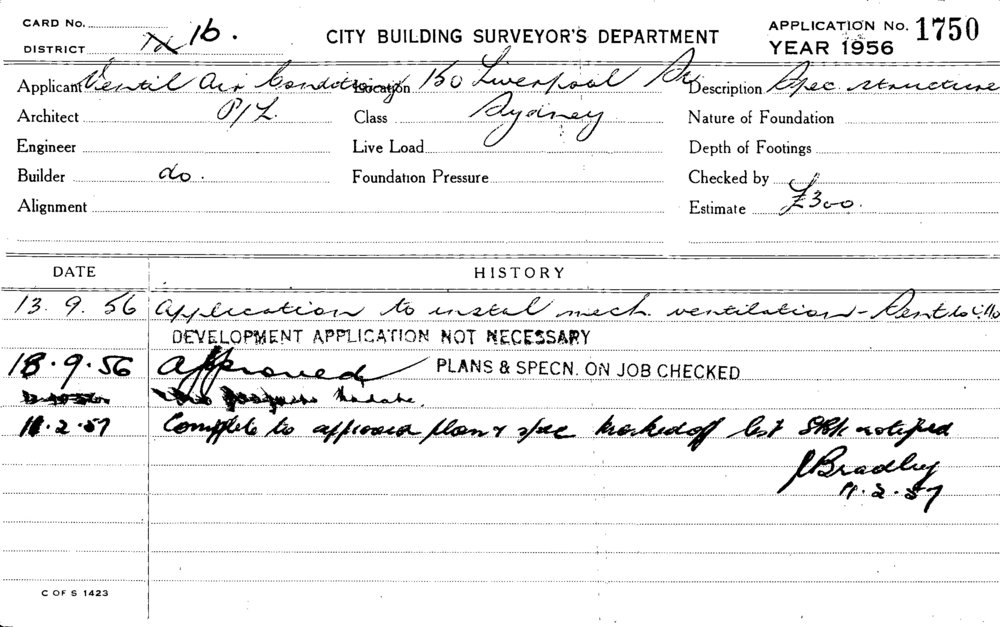 CARD No. APPLICATION No. 1750
DISTRICT 16. CITY BUILDING SURVEYOR'S DEPARTMENT YEAR 1956
Applicant Ventil Air Conditiong Location 150 Liverpool St Description Spec. structure
Architect P/L. Class Sydney Nature of Foundation
Engineer Live Load Depth of Footings
Builder do. Foundation Pressure Checked by
Alignment Estimate £300.
DATE HISTORY
13. 9. 56 Application to instal mech. ventilation -
DEVELOPMENT APPLICATION NOT NECESSARY
18.9.56 Approved PLANS & SPECN. ON JOB CHECKED
11.2.57 Complete to approved plan & spec Marked off list notified
J Bradley
11.2.57
C OF S 1423